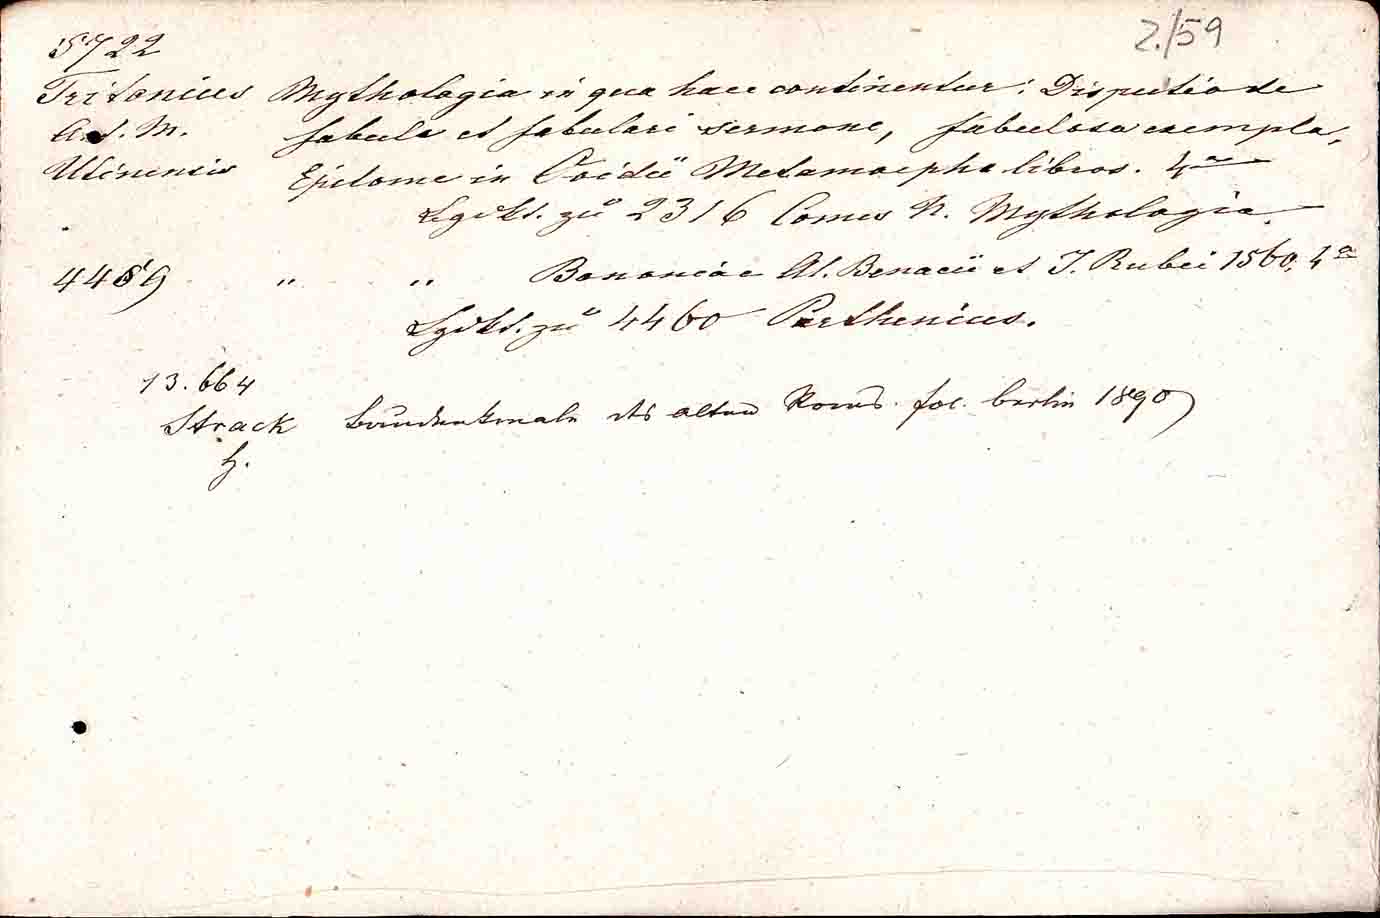 2./59
5722
Tritonius Mythologia in qua haec continentur: Disputio de
M. fabula et fabulari sermone, fabulosa exempla,
Utinensis Epitome in Ovidii Metamorpho libros. 4°
zu 2316 Comes N. Mythologia.
4459 " " Bononiae Al. Benacii et J. Rubei 1560. 4°
zu 4460 Parthenius.
13.664
Strack Baudenkmale des alten Roms. fol. berlin 1890
H.